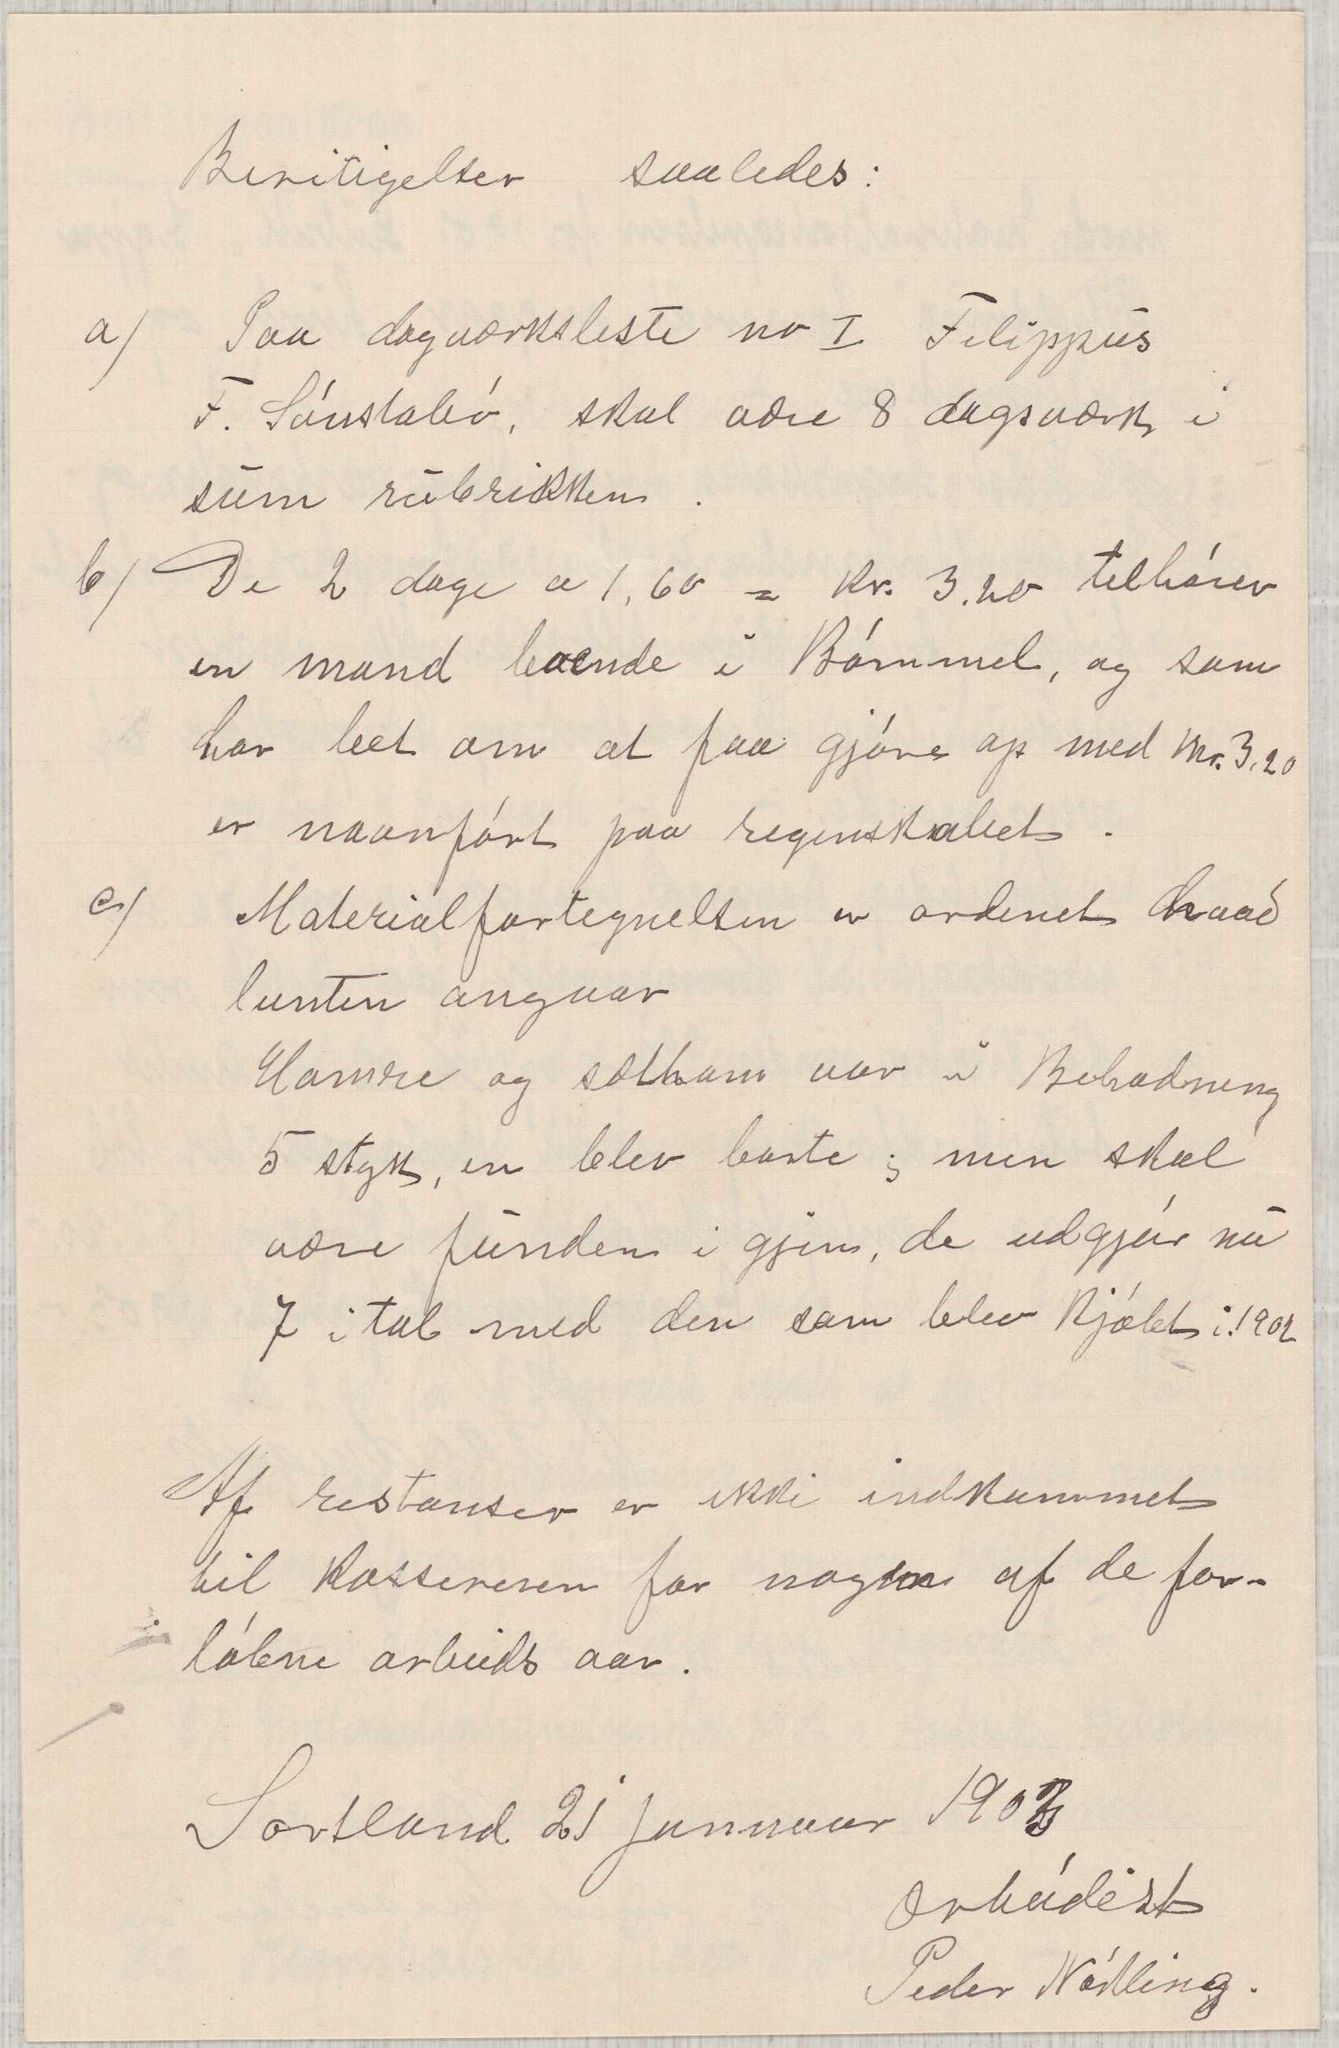 Beritigelser saaledes:
a) Paa dagværksleste no I Filippus
F. Sónstabó, skal være 8 dagsværk i
sum rubrikken.
b) De 2 dage a 1,60 = Kr. 3.20 telhórer
en mand boende i Bómmel, og som
har bet om at faa gjóre op med Kr. 3,20
er naanfórt paa regenskabet.
c) Materialfortegnelsen er ordenet hvad
lunten angaar
Hamre og var i Behodning
5 styk, en blev borte; men skal
være funden i gjen, de udgjór nu
7 i tal med den som blev Kjóbt i 1902
Af restanser er ikke indkommet
til Kassereren for nogen af de for-
lóbne arbeids aar.
Sortland 21 januar 1903
Ærbódist
Peder Nódling.